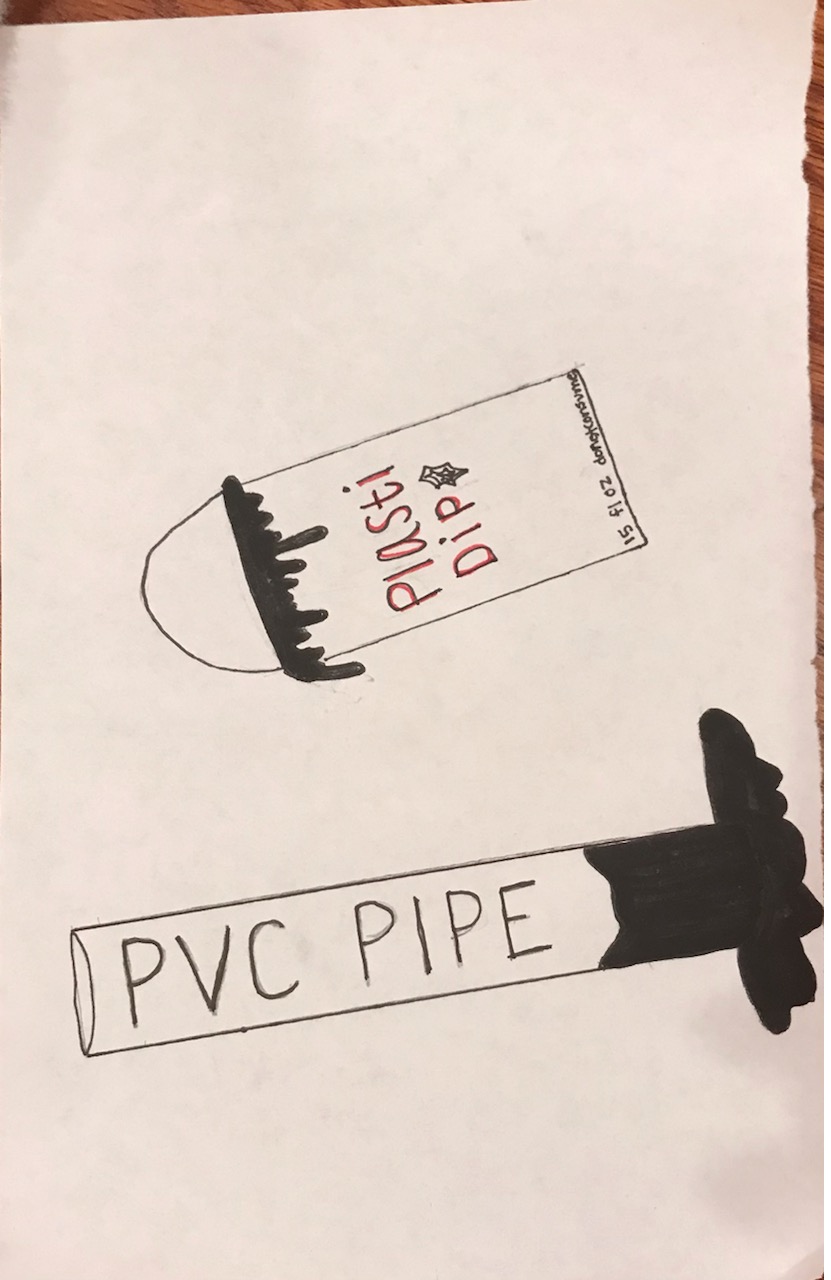 Plasti
Dip
15 fl oz dongkonsums
PVC PIPE